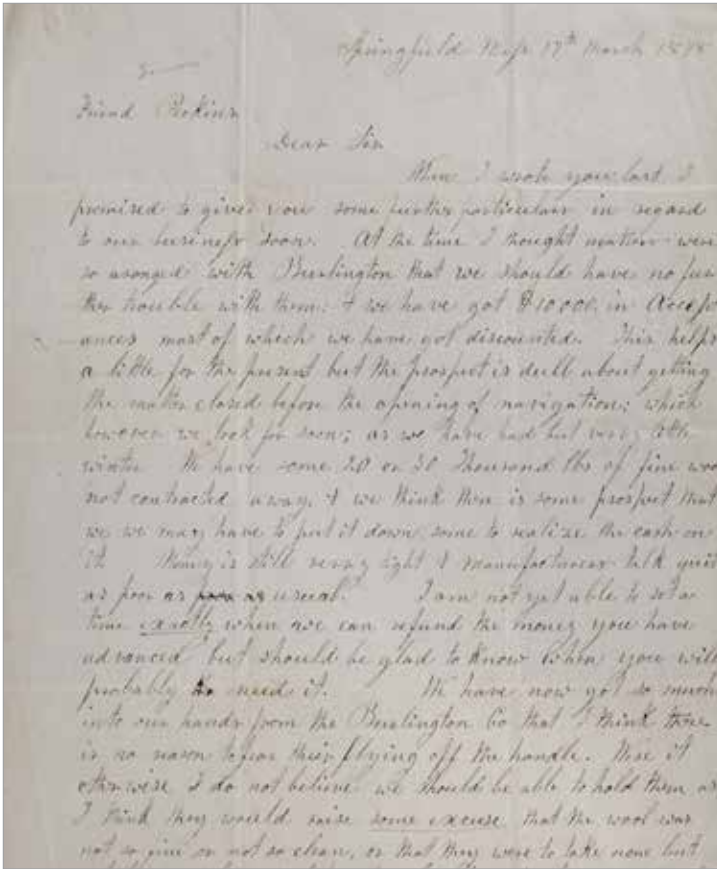 Springfield Mass 17th March
Friend Perkins
Dear Sir
When I wrote you last I
promised to give you some further particulars in regard
to our business soon. At the time I thought matters were
so aranged with Burlington that we should have no fur
ther trouble with them; & we have got $10000, in Accept
ances most of which we have got discounted. This helps
a little for the present but the prospect is dull about getting
the matter closed before the opening of navigation; which
however we look for soon; as we have had but very little
winter We have some 20 or 30 Thousand lbs of fine wool
not contracted away, & we think there is some prospect that
we we may have to put it down some to realize the cash on
it Money is still verry tight & manufacturers talk quite
as poor as poor as usual. I am not yet able to set a
time exactly when we can refund the money you have
advanced but should be glad to know when you will
probably need it. We have now got so much
into our hands from the Burlington Co that I think there
is no reason to fear their flying off the handle. Were it
otherwise I do not believe we should be able to hold them as
I think they would raise some excuse that the wool was
not so fine or not so clean, or that they were to take none but